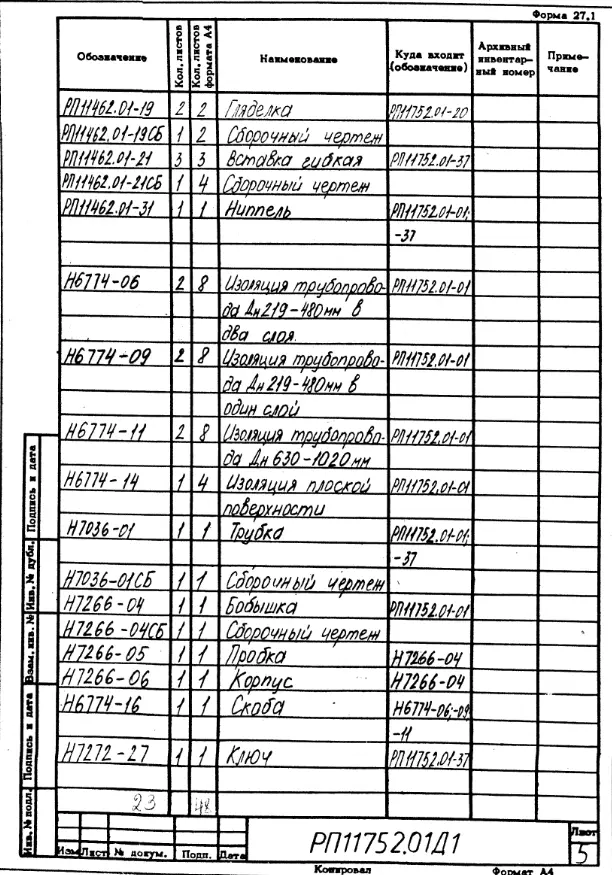 Форма 27.1
Обозначение Кол. листов Кол. листов формата А4 Наименование Куда входит (обозначение) Архивный инвентарный номер Примечание
РП11462.01-19 2 2 Гляделка РП11752.01-20
РП11462.01-19СБ 1 2 Сборочный чертеж
РП11462.01-21 3 3 Вставка гибкая РП11752.01-37
РП11462.01-21СБ 1 4 Сборочный чертеж
РП11462.01-31 1 1 Ниппель РП11752.01-01;
-37
Н6774-06 2 8 Изоляция трубопрово- РП11752.01-01
да Дн219-480мм в
два слоя.
Н6774-09 2 8 Изоляция трубопрово- РП11752.01-01
да Дн219-480мм в
один слой
Н6774-11 2 8 Изоляция трубопрово- РП11752.01-01
да Дн630-1020мм
Н6774-14 1 4 Изоляция плоской РП11752.01-01
поверхности
Н7036-01 1 1 Трубка РП11752.01-01;
-37
Н7036-01СБ 1 1 Сборочный чертеж
Н7266-04 1 1 Бобышка РП11752.01-01
Н7266-04СБ 1 1 Сборочный чертеж
Н7266-05 1 1 Пробка Н7266-04
Н7266-06 1 1 Корпус Н7266-04
Н6774-16 1 1 Скоба Н6774-06;-09
-11
Н7272-27 1 1 Ключ РП11752.01-37
23 48
Подпись и дата
Инв. № дубл.
Взам. инв. №
Подпись и дата
Инв. № подл.
РП11752.01Д1
Лист
5
Изм Лист № докум. Подп. Дата
Копировал Формат А4